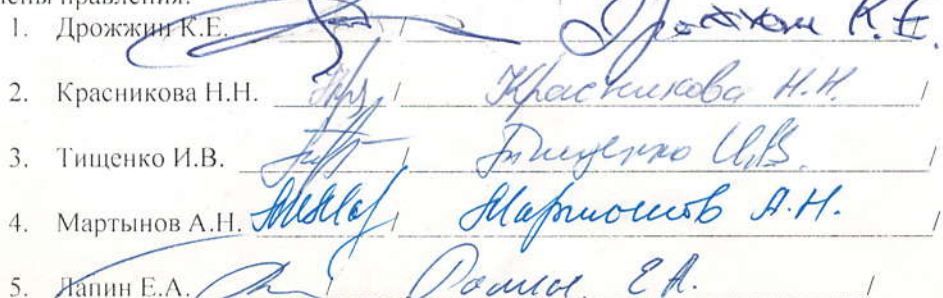 члены правления:
1. Дрожжин К.Е. / Дрожжин К.Е.
2. Красникова Н.Н. / Красникова Н.Н. /
3. Тищенко И.В. / Тищенко И.В. /
4. Мартынов А.Н. / Мартынов А.Н. /
5. Лапин Е.А. / Е.А. /